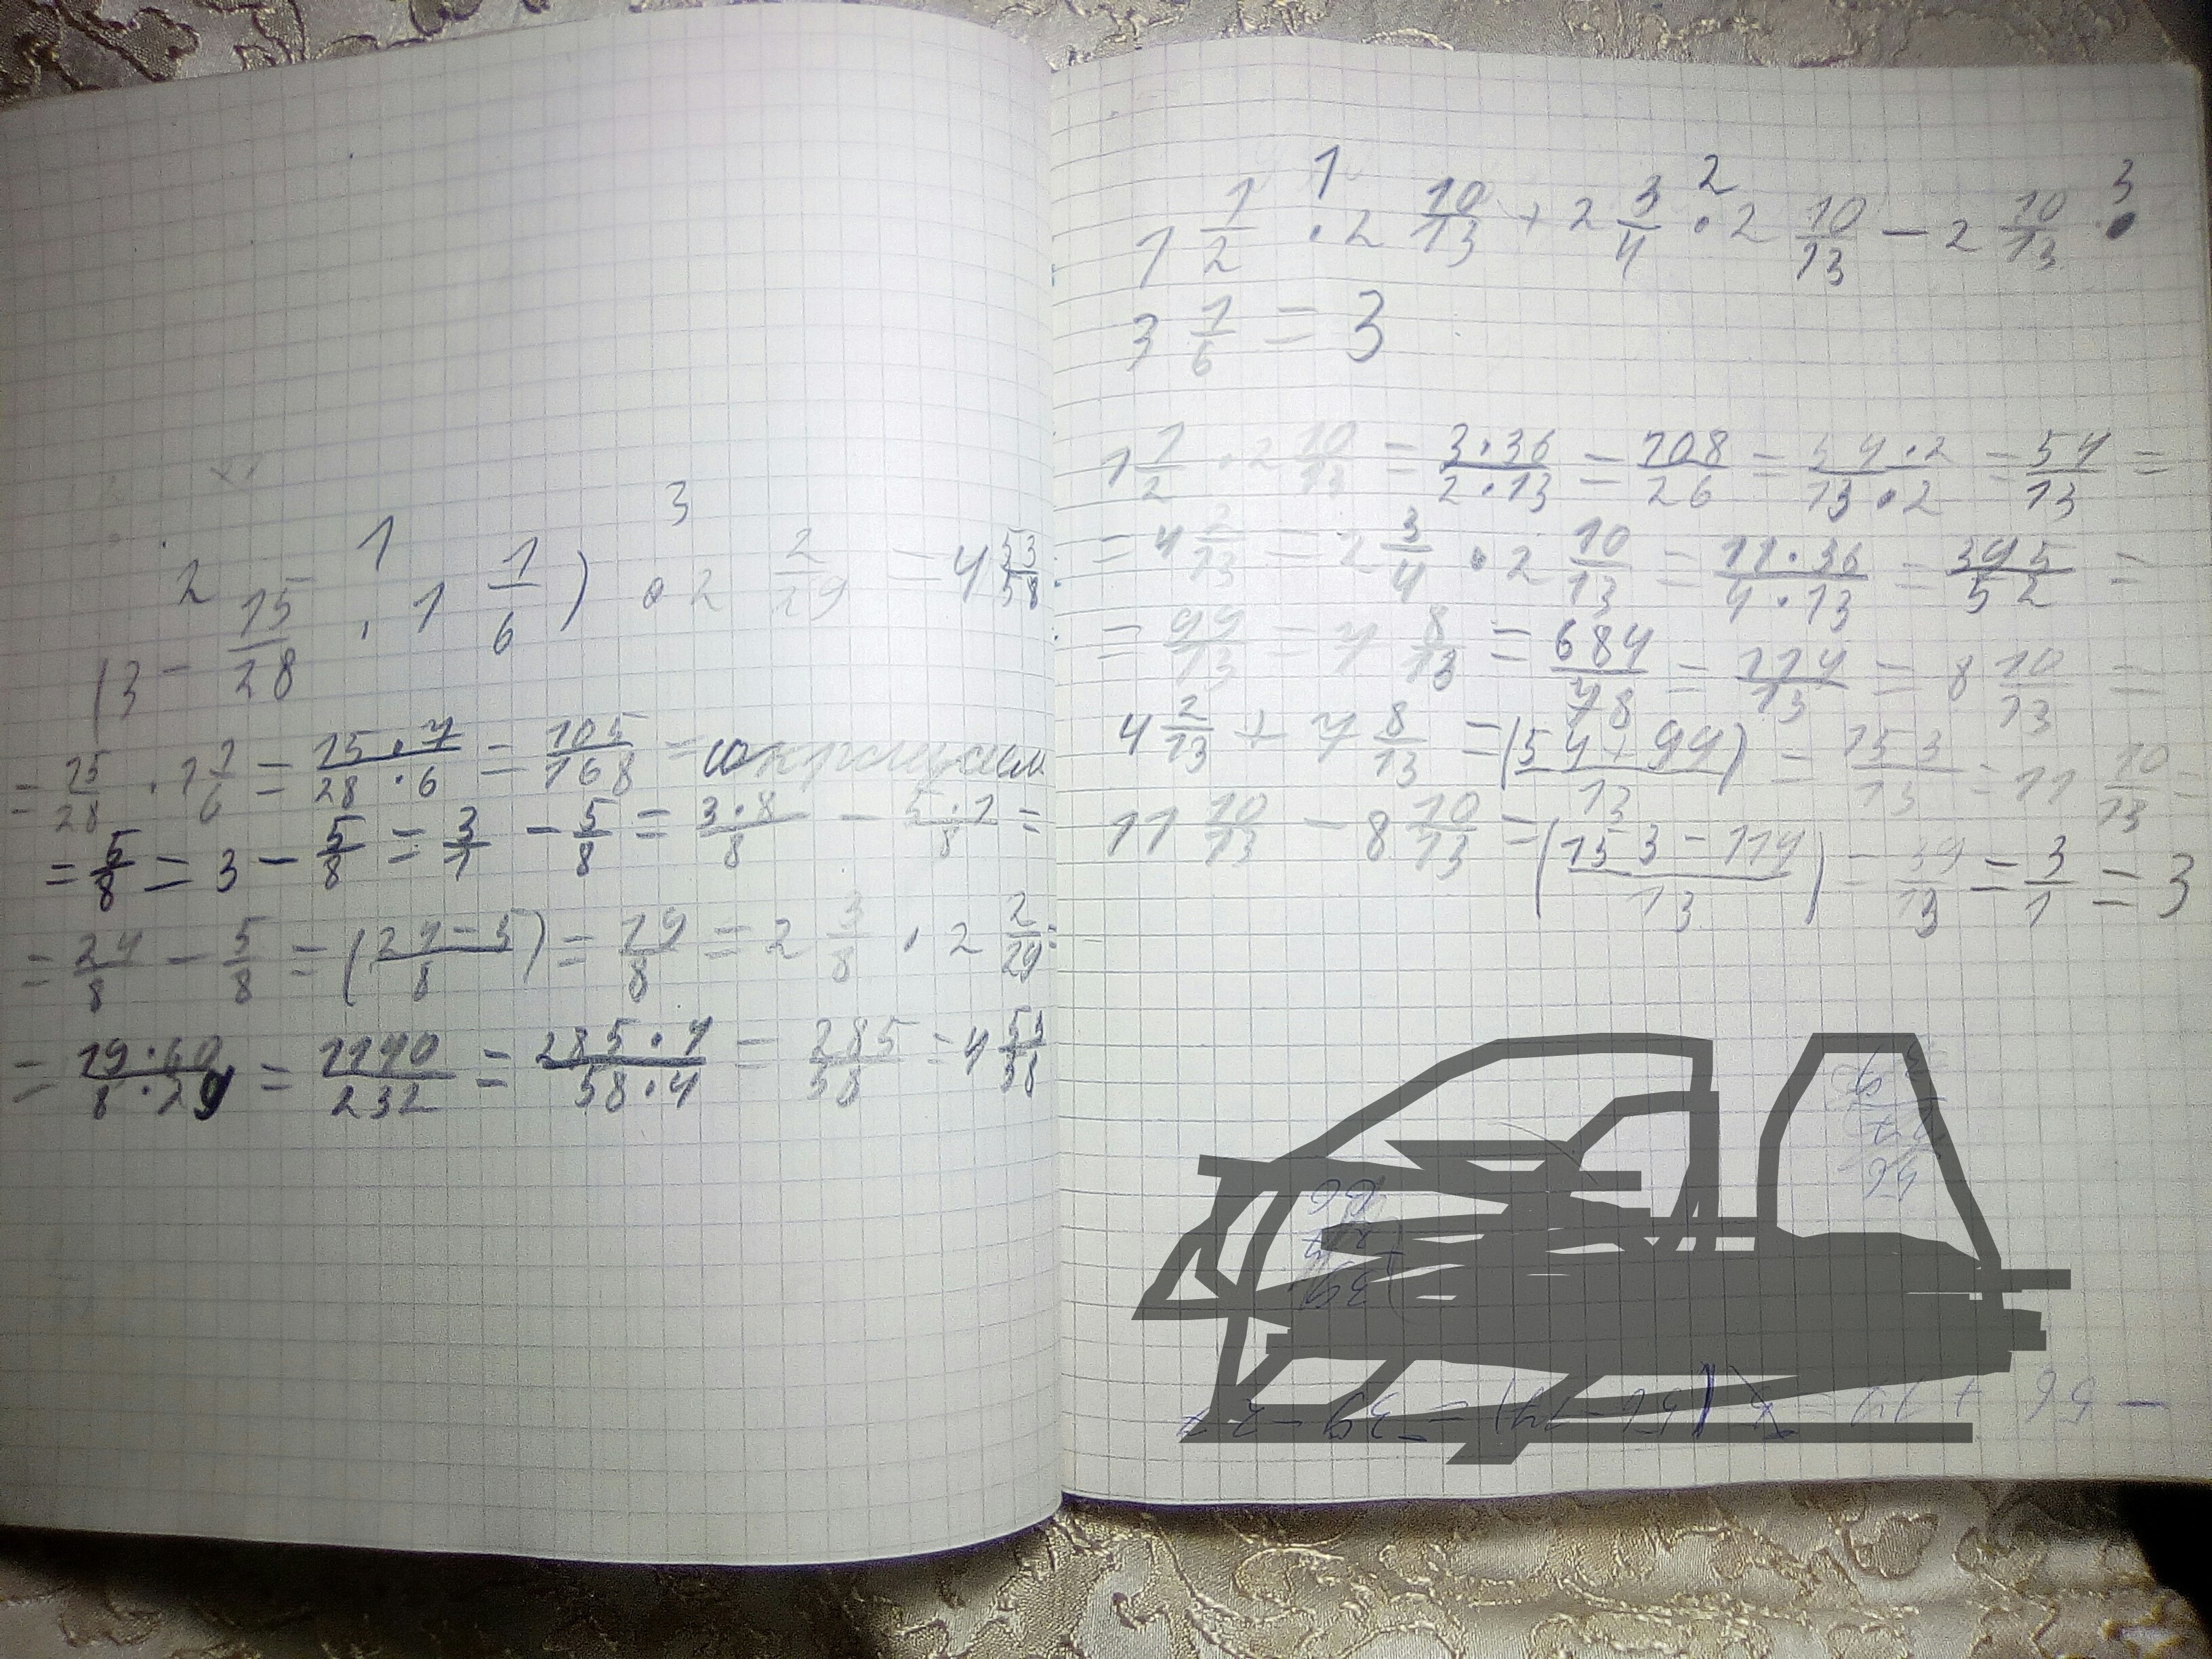 2 1 3
(3 - 15/28 · 1 1/6) · 2 2/29 = 4 53/58
= 15/28 · 1 1/6 = 15·7/28·6 = 105/168 = сокращаем
= 5/8 = 3 - 5/8 = 3/1 - 5/8 = 3·8/8 - 5·1/8 =
= 24/8 - 5/8 = (24-5/8) = 19/8 = 2 3/8 · 2 2/29 =
= 19·60/8·29 = 1140/232 = 285·4/58·4 = 285/58 = 4 53/58
1 2 3
1 1/2 · 2 10/13 + 2 3/4 · 2 10/13 - 2 10/13 ·
3 1/6 = 3
1 1/2 · 2 10/13 = 3·36/2·13 = 108/26 = 54·2/13·2 = 54/13 =
= 4 2/13 = 2 3/4 · 2 10/13 = 11·36/4·13 = 395/52 =
= 99/13 = 7 8/13 = 684/78 = 114/13 = 8 10/13 =
4 2/13 + 7 8/13 = (54+99/13) = 153/13 = 11 10/13 =
11 10/13 - 8 10/13 = (153-114/13) = 39/13 = 3/1 = 3